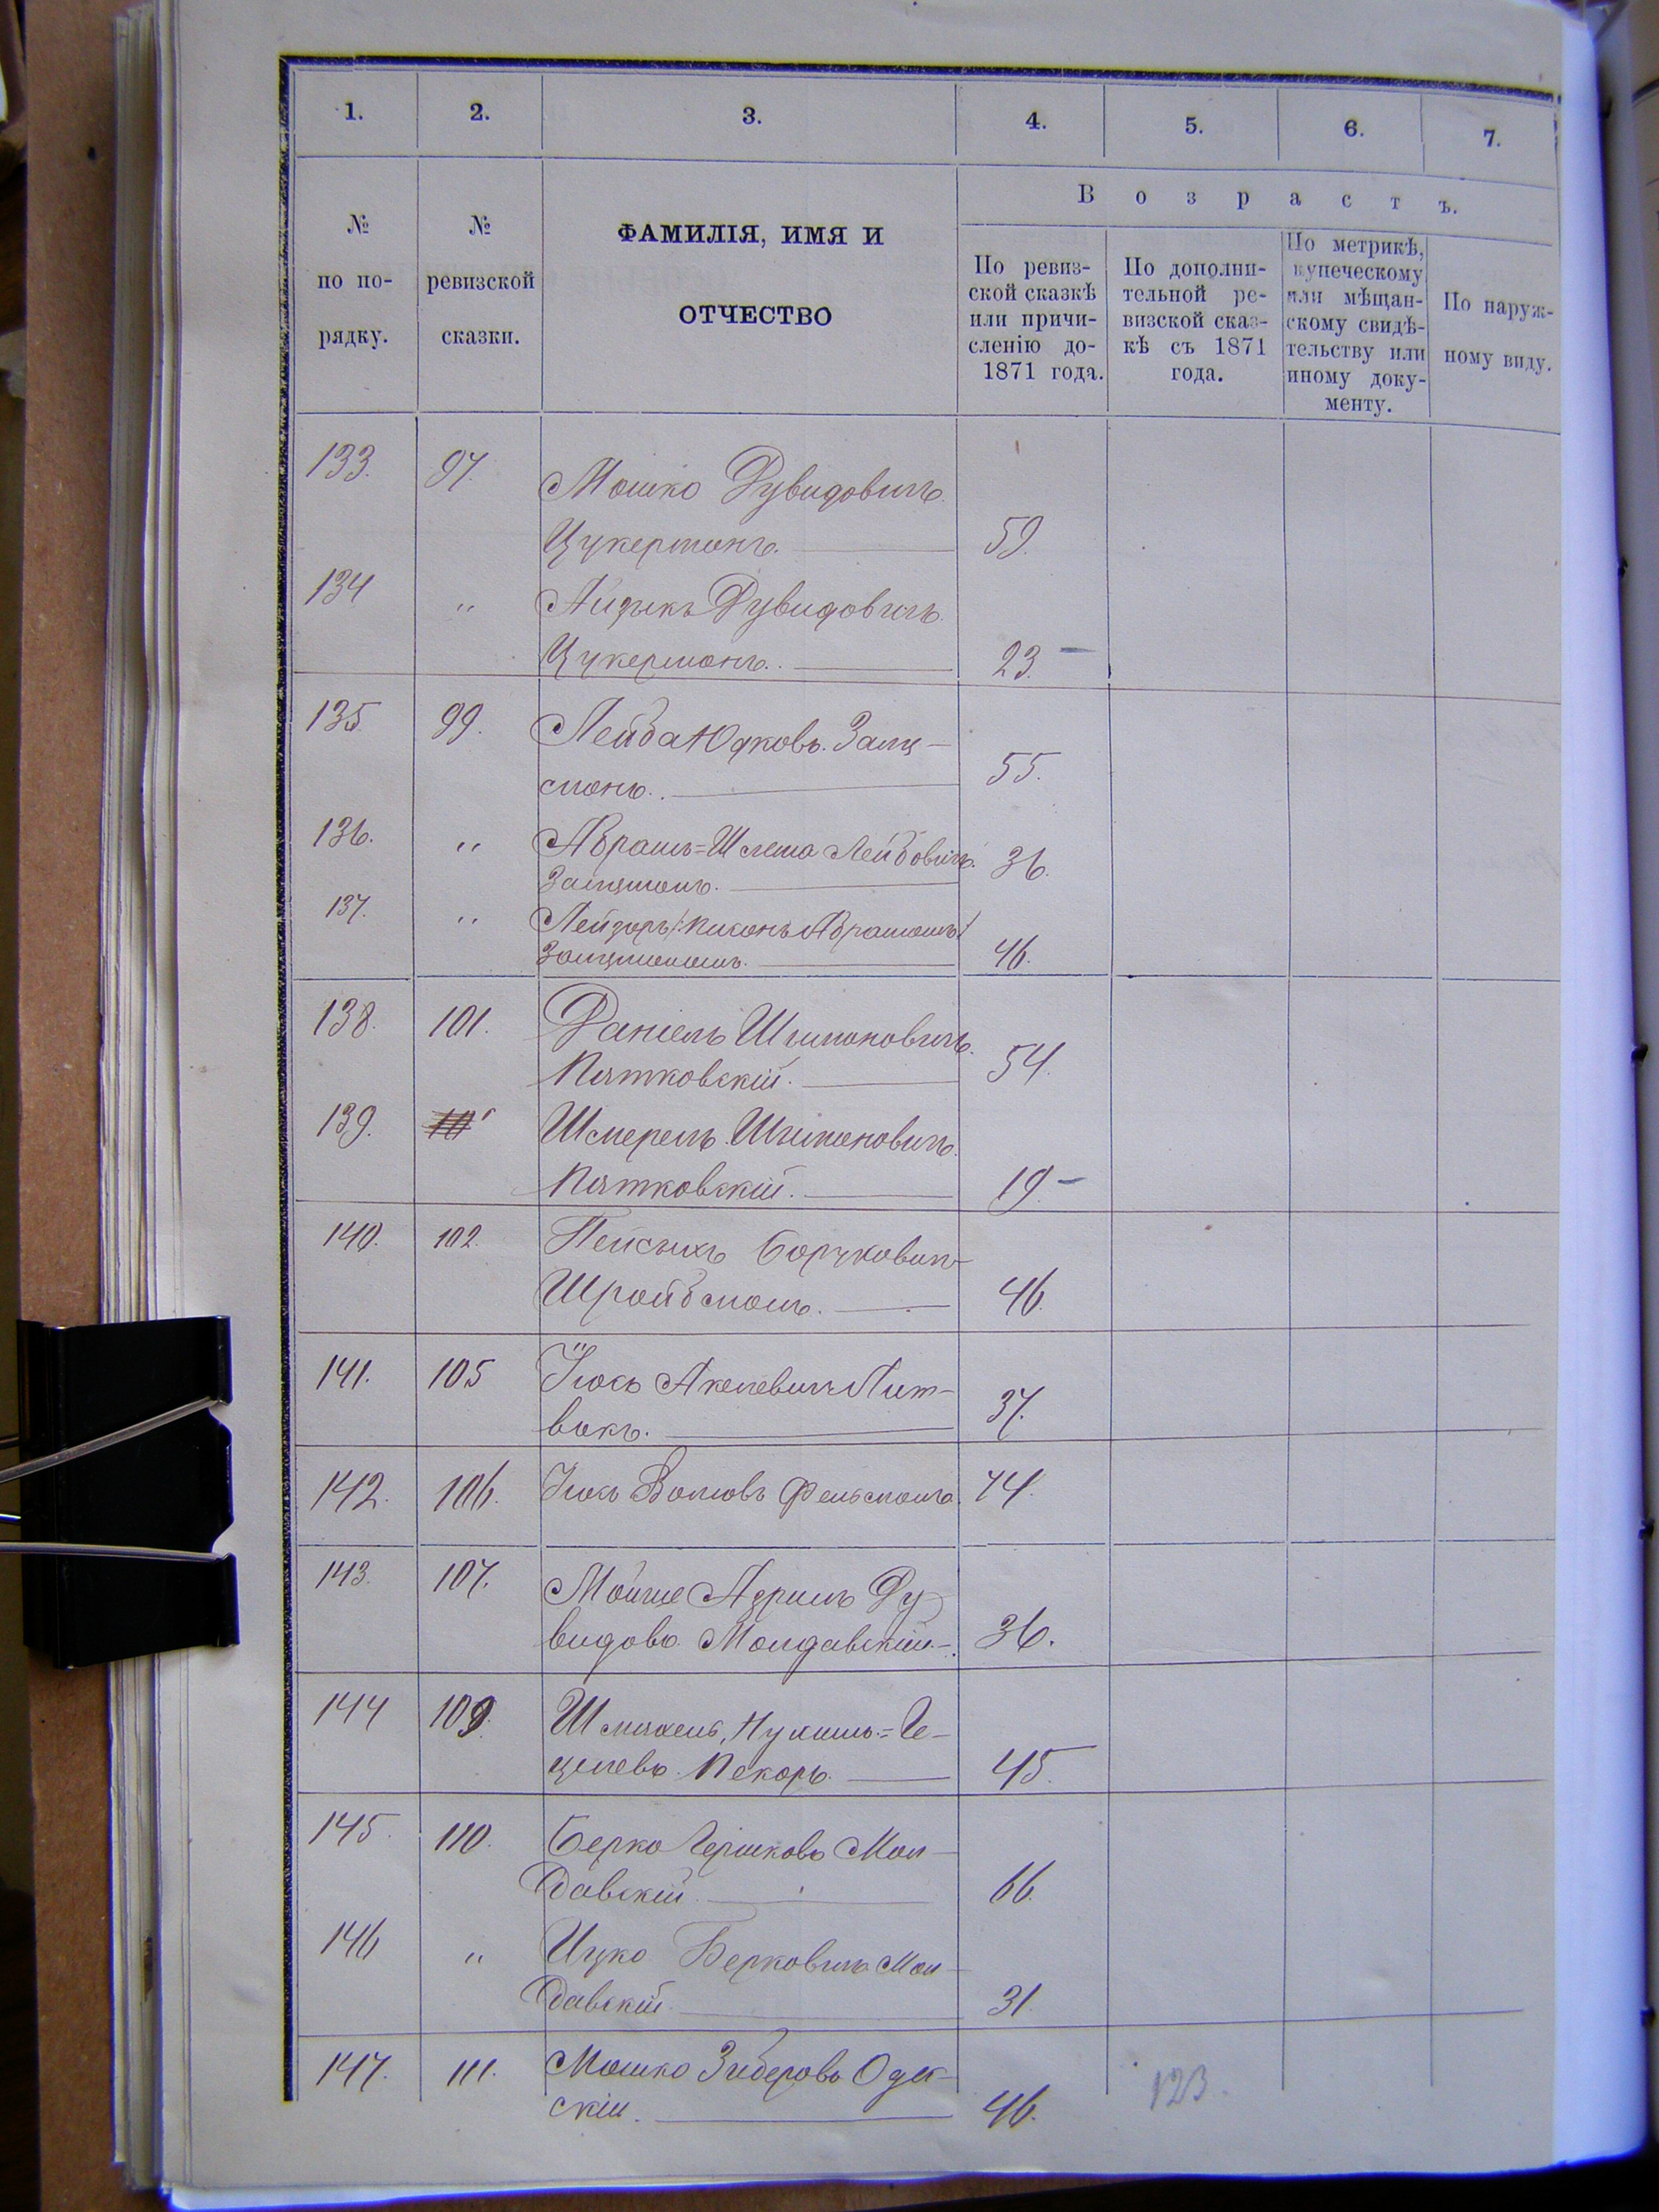 1. 2. 3. 4. 5. 6. 7.
В о з р а с т ъ.
№ по по- рядку.
№ ревизской сказки.
ФАМИЛІЯ, ИМЯ И
ОТЧЕСТВО
По ревиз-
ской сказкѣ
или причи-
сленію до-
1871 года.
По дополни-
тельной ре-
визской сказ-
кѣ съ 1871
года.
По метрикѣ,
купеческому
или мѣщан-
скому свидѣ-
тельству или
иному доку-
менту.
По наруж-
ному виду.
133. 97. Мошко Дувидовичъ
Цукерманъ. 59.
134 " Айзыкъ Дувидовичъ
Цукерманъ. 23. –
135 99. Лейба Юдковъ Залц-
манъ. 55.
136. " Абрамъ=Шлема Лейбовичъ
Залцманъ. 36.
137. " Лейзоръ Абрамомъ
46.
138. 101. Даніель Шимоновичъ
Пятковскій. 54.
139. " Шмерель Шимоновичъ
Пятковскій. 19. –
140. 102. Пейсыхъ Боруховичъ
Шройбманъ. 46.
141. 105 Іосъ Лит-
вакъ. 37.
142. 106. Волковъ Фельдманъ 74.
143. 107. Мойше Азриль Ду
видовъ Молдавскій. 36.
144 109. Ге-
целевъ Пекаръ. 45.
145. 110. Берко Гершковъ Мол-
давскій. 66.
146 " Ицко Берковичъ Мол-
давскій. 31.
147. 111. Мошко Одес-
скій. 46.
123.